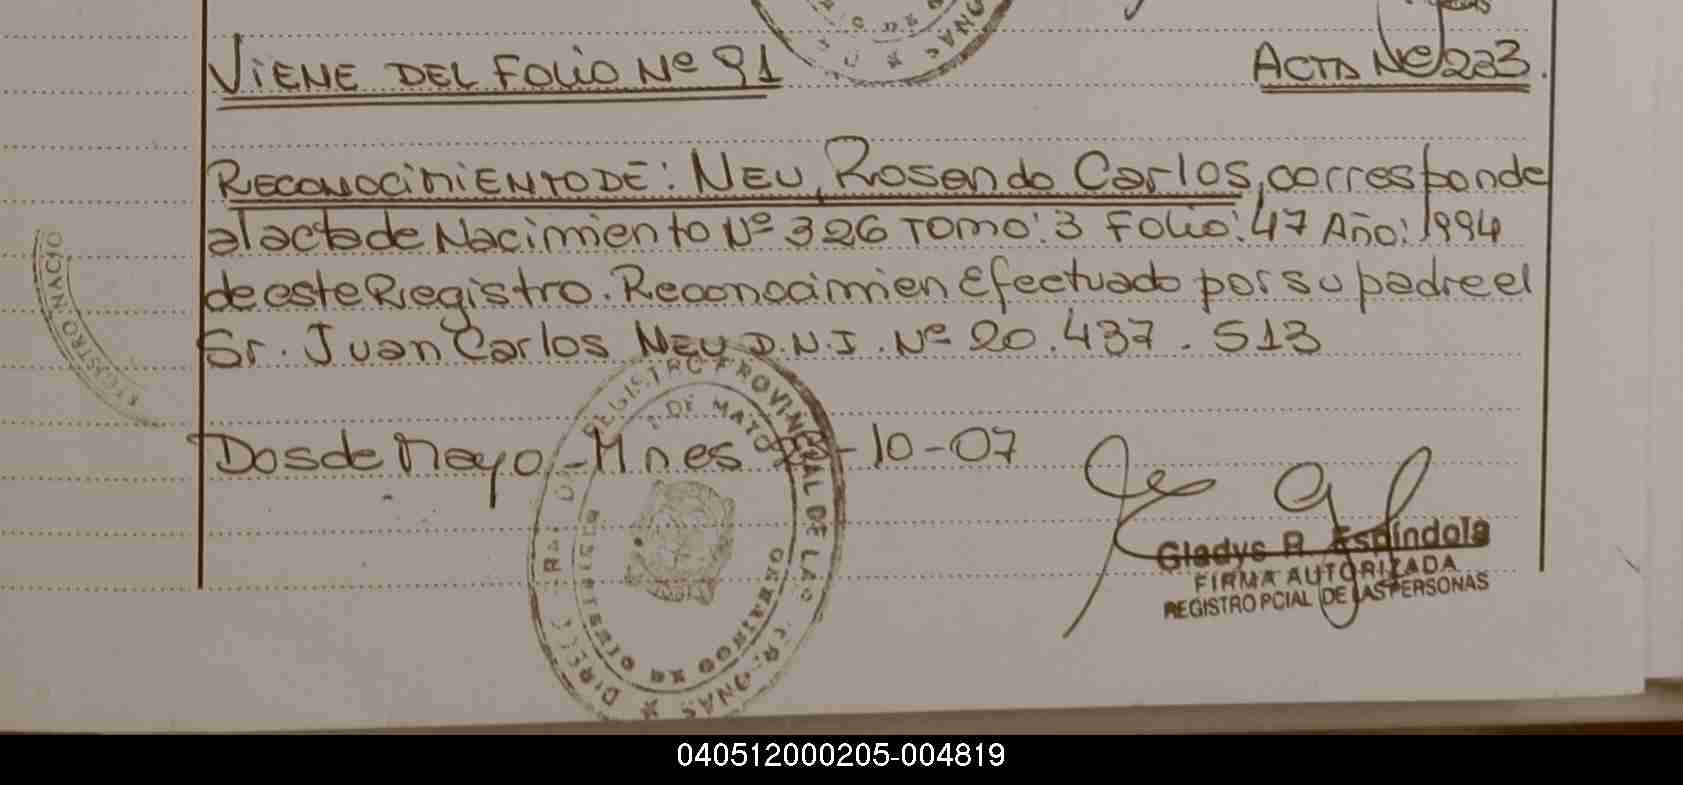 VIENE DEL FOLIO Nº 91
ACTA Nº 233.
RECONOCIMIENTO DE: NEU, Rosendo Carlos, corresponde
al acta de Nacimiento Nº 326 Tomo: 3 Folio: 47 Año: 1994
de este Registro. Reconocimien Efectuado por su padre el
Sr. Juan Carlos NEU D.N.I. Nº 20.437.513
Dos de Mayo - Mnes -10-07
Gladys R. Espíndola
FIRMA AUTORIZADA
REGISTRO PCIAL DE LAS PERSONAS
REGISTRO PROVINCIAL DE LAS
REGISTRO NACIO
040512000205-004819